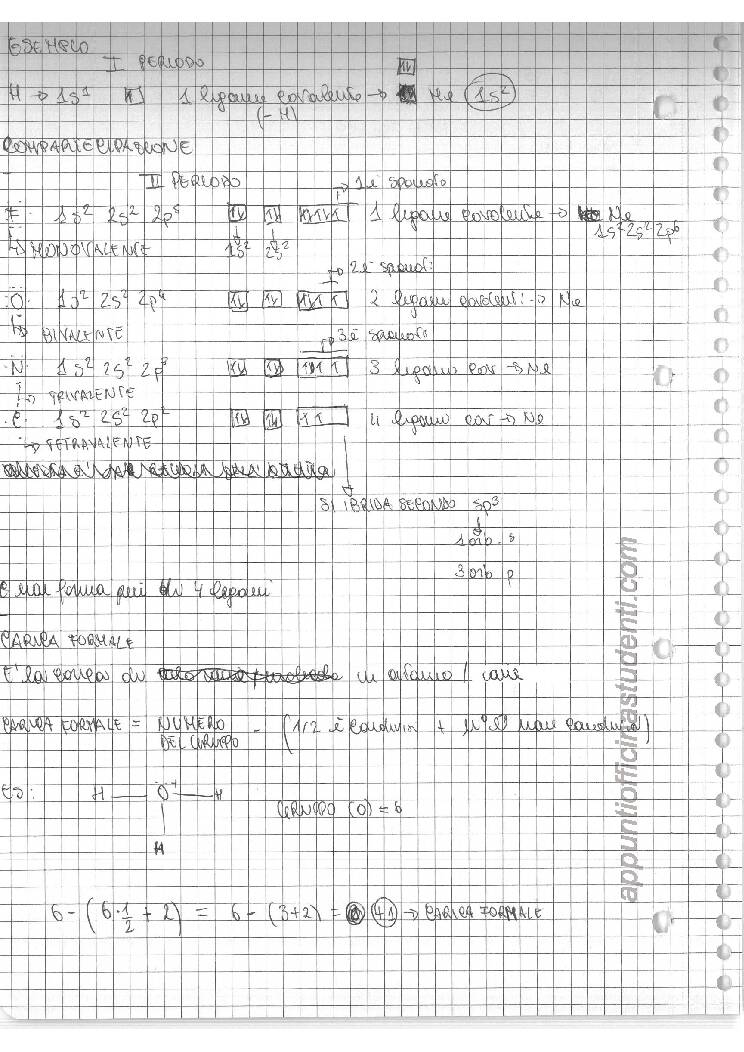 ESEMPIO
I PERIODO
H → 1s¹ 1 legame covalente → He 1s²
(-H)
COMPARTECIPAZIONE
II PERIODO
1 e⁻ spaiato
F: 1s² 2s² 2p⁵ 1 legame covalente → Ne
1s² 2s² 2p⁶
→ MONOVALENTE 1s² 2s²
2 e⁻ spaiati
O: 1s² 2s² 2p⁴ 2 legami covalenti → Ne
→ BIVALENTE
3 e⁻ spaiati
N 1s² 2s² 2p³ 3 legami cov → Ne
→ TRIVALENTE
C 1s² 2s² 2p² 4 legami cov → Ne
→ TETRAVALENTE
SI IBRIDA SECONDO sp³
1 orb. s
3 orb p
e non forma più di 4 legami
CARICA FORMALE
E' la carica di un atomo / ione
CARICA FORMALE = NUMERO DEL GRUPPO - (1/2 e⁻ condivisi + n° e⁻ non condivisi)
Es: H — O⁺ — H
GRUPPO (O) = 6
H
6 - (6·1/2 + 2) = 6 - (3+2) = +1 → CARICA FORMALE
appuntiofficinastudenti.com